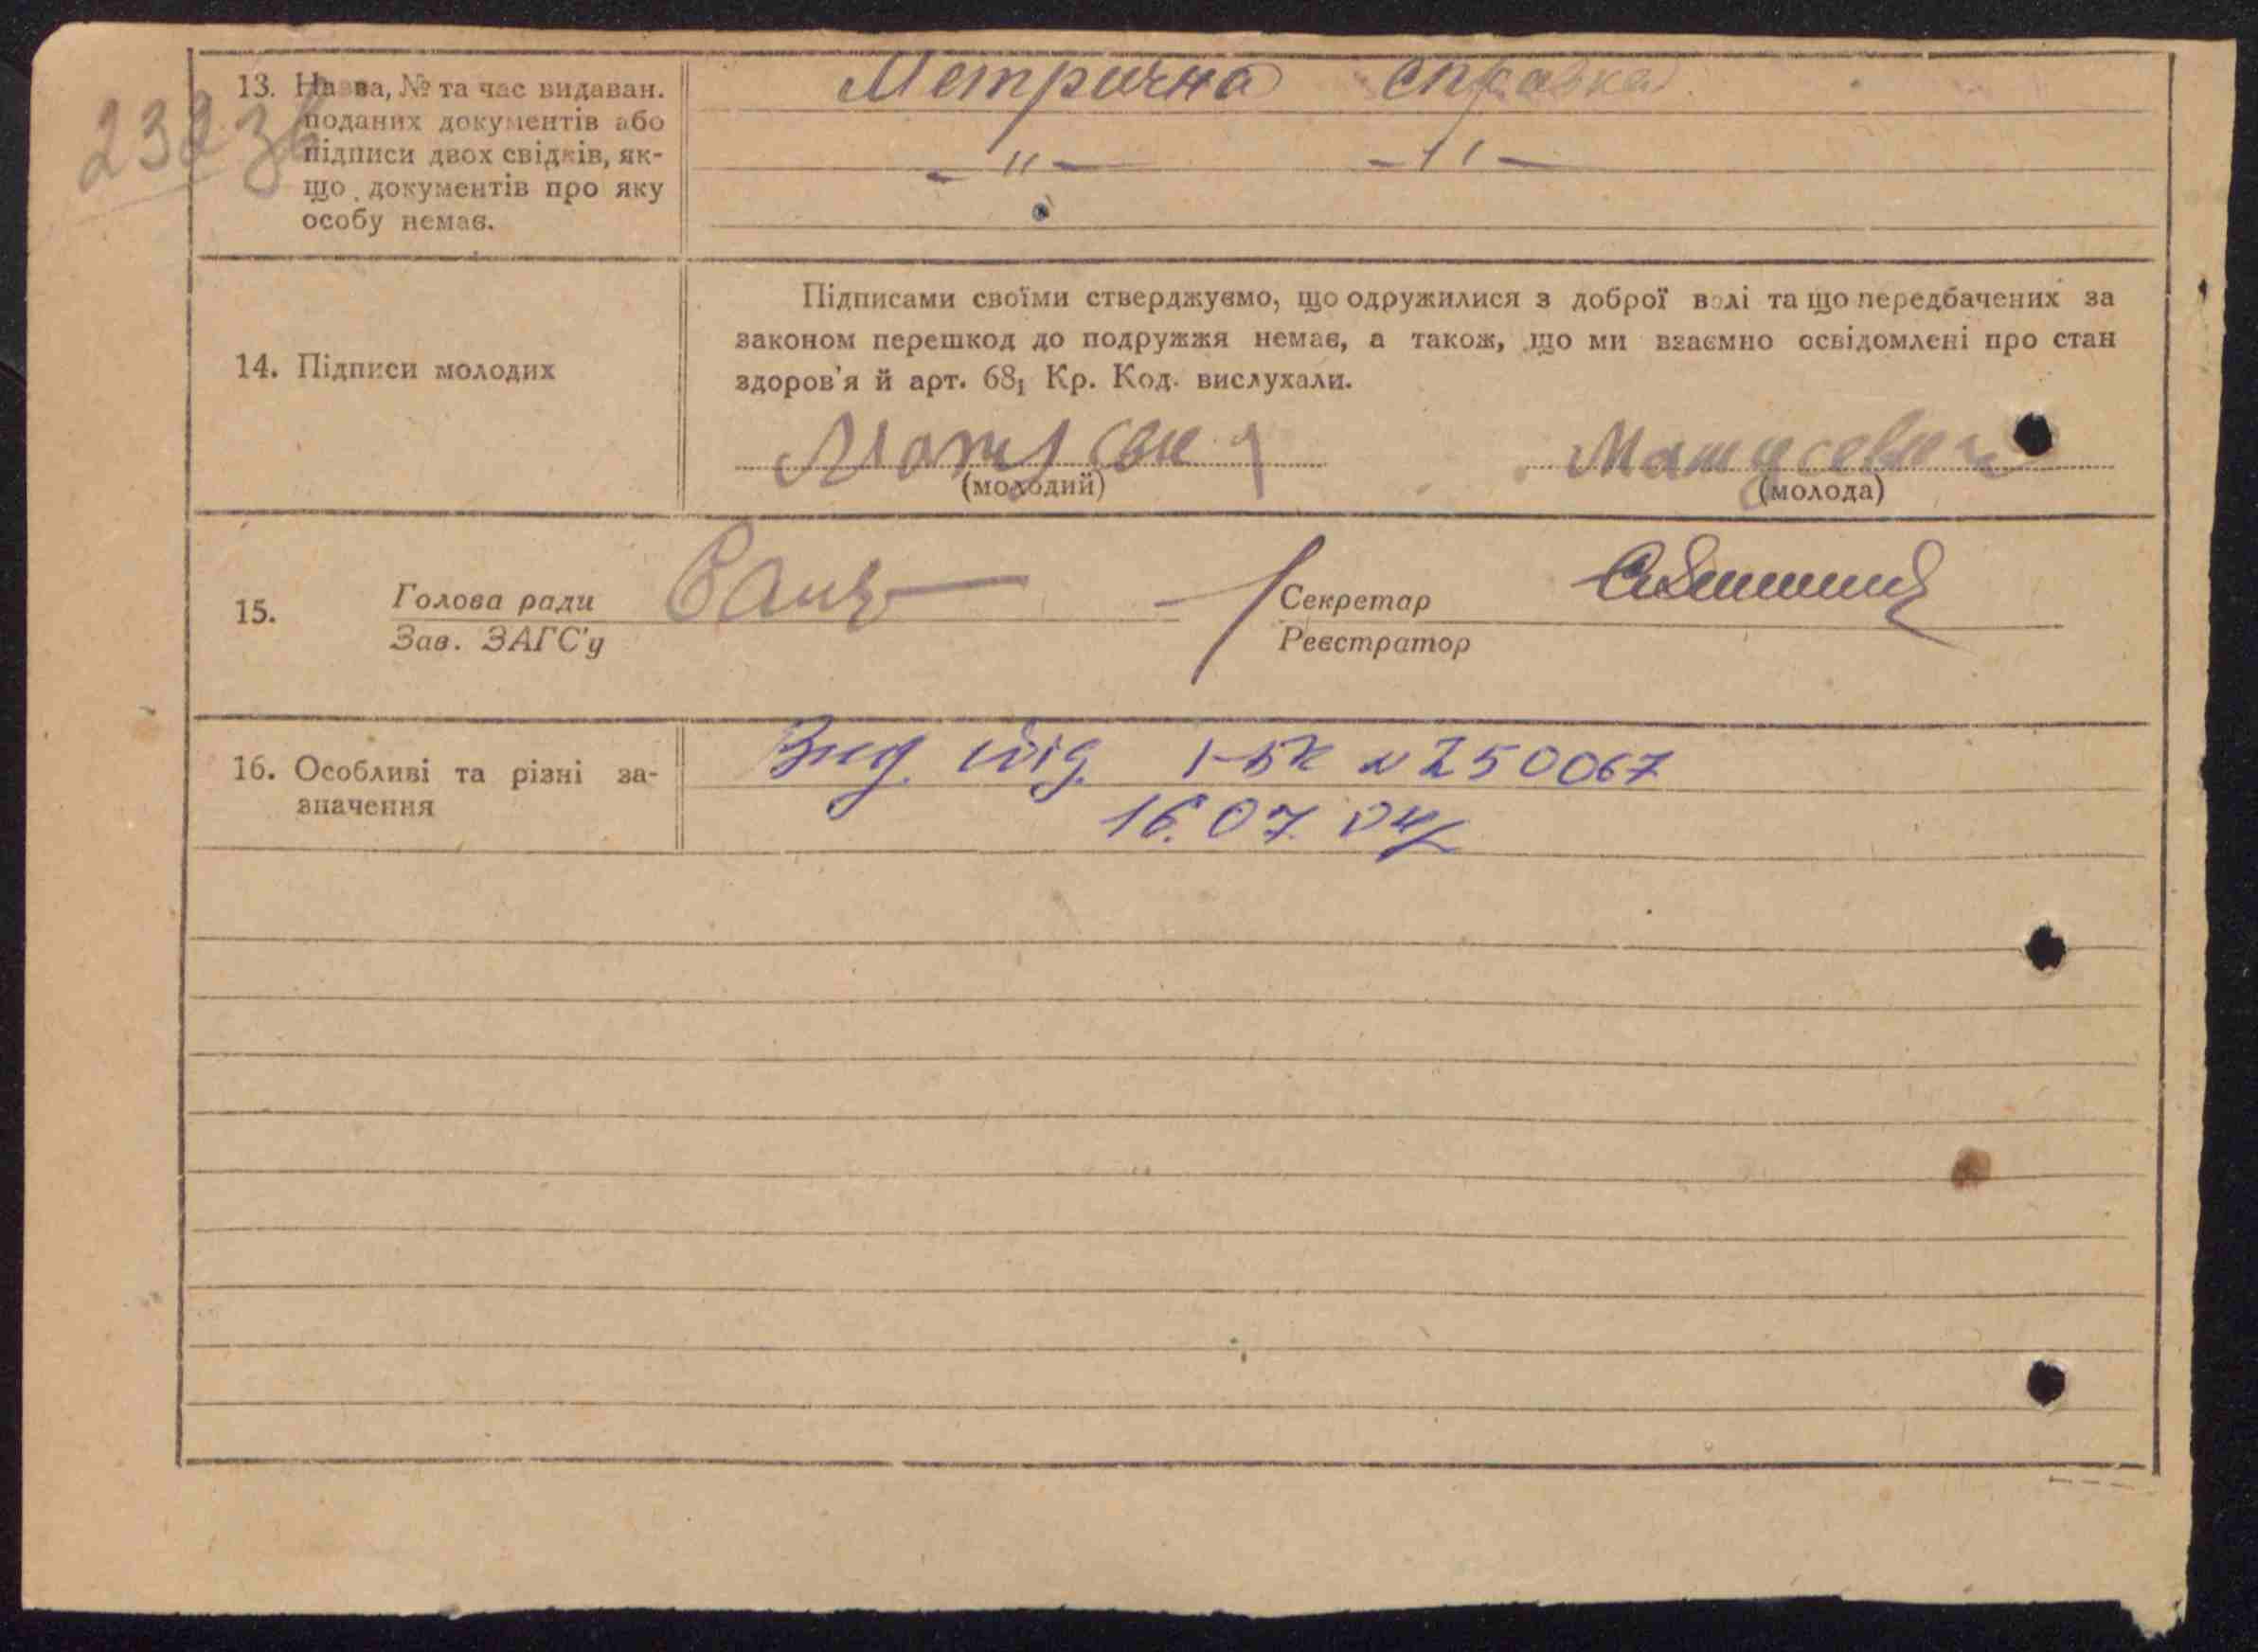 232 зв
13. Назва, № та час видаван. поданих документів або підписи двох свідків, як-що документів про яку особу немає.
Метрична справка
— " — — " —
Підписами своїми стверджуємо, що одружилися з доброї волі та що передбачених за
законом перешкод до подружжя немає, а також, що ми взаємно освідомлені про стан
здоров'я й арт. 68₁ Кр. Код. вислухали.
14. Підписи молодих
Матусевич
Матусевич
(молодий)
(молода)
15.
Голова ради
Секретар
Зав. ЗАГС'у
Реєстратор
16. Особливі та різні за-
значення
Вид. свід. І-БК № 250067
16.07.04